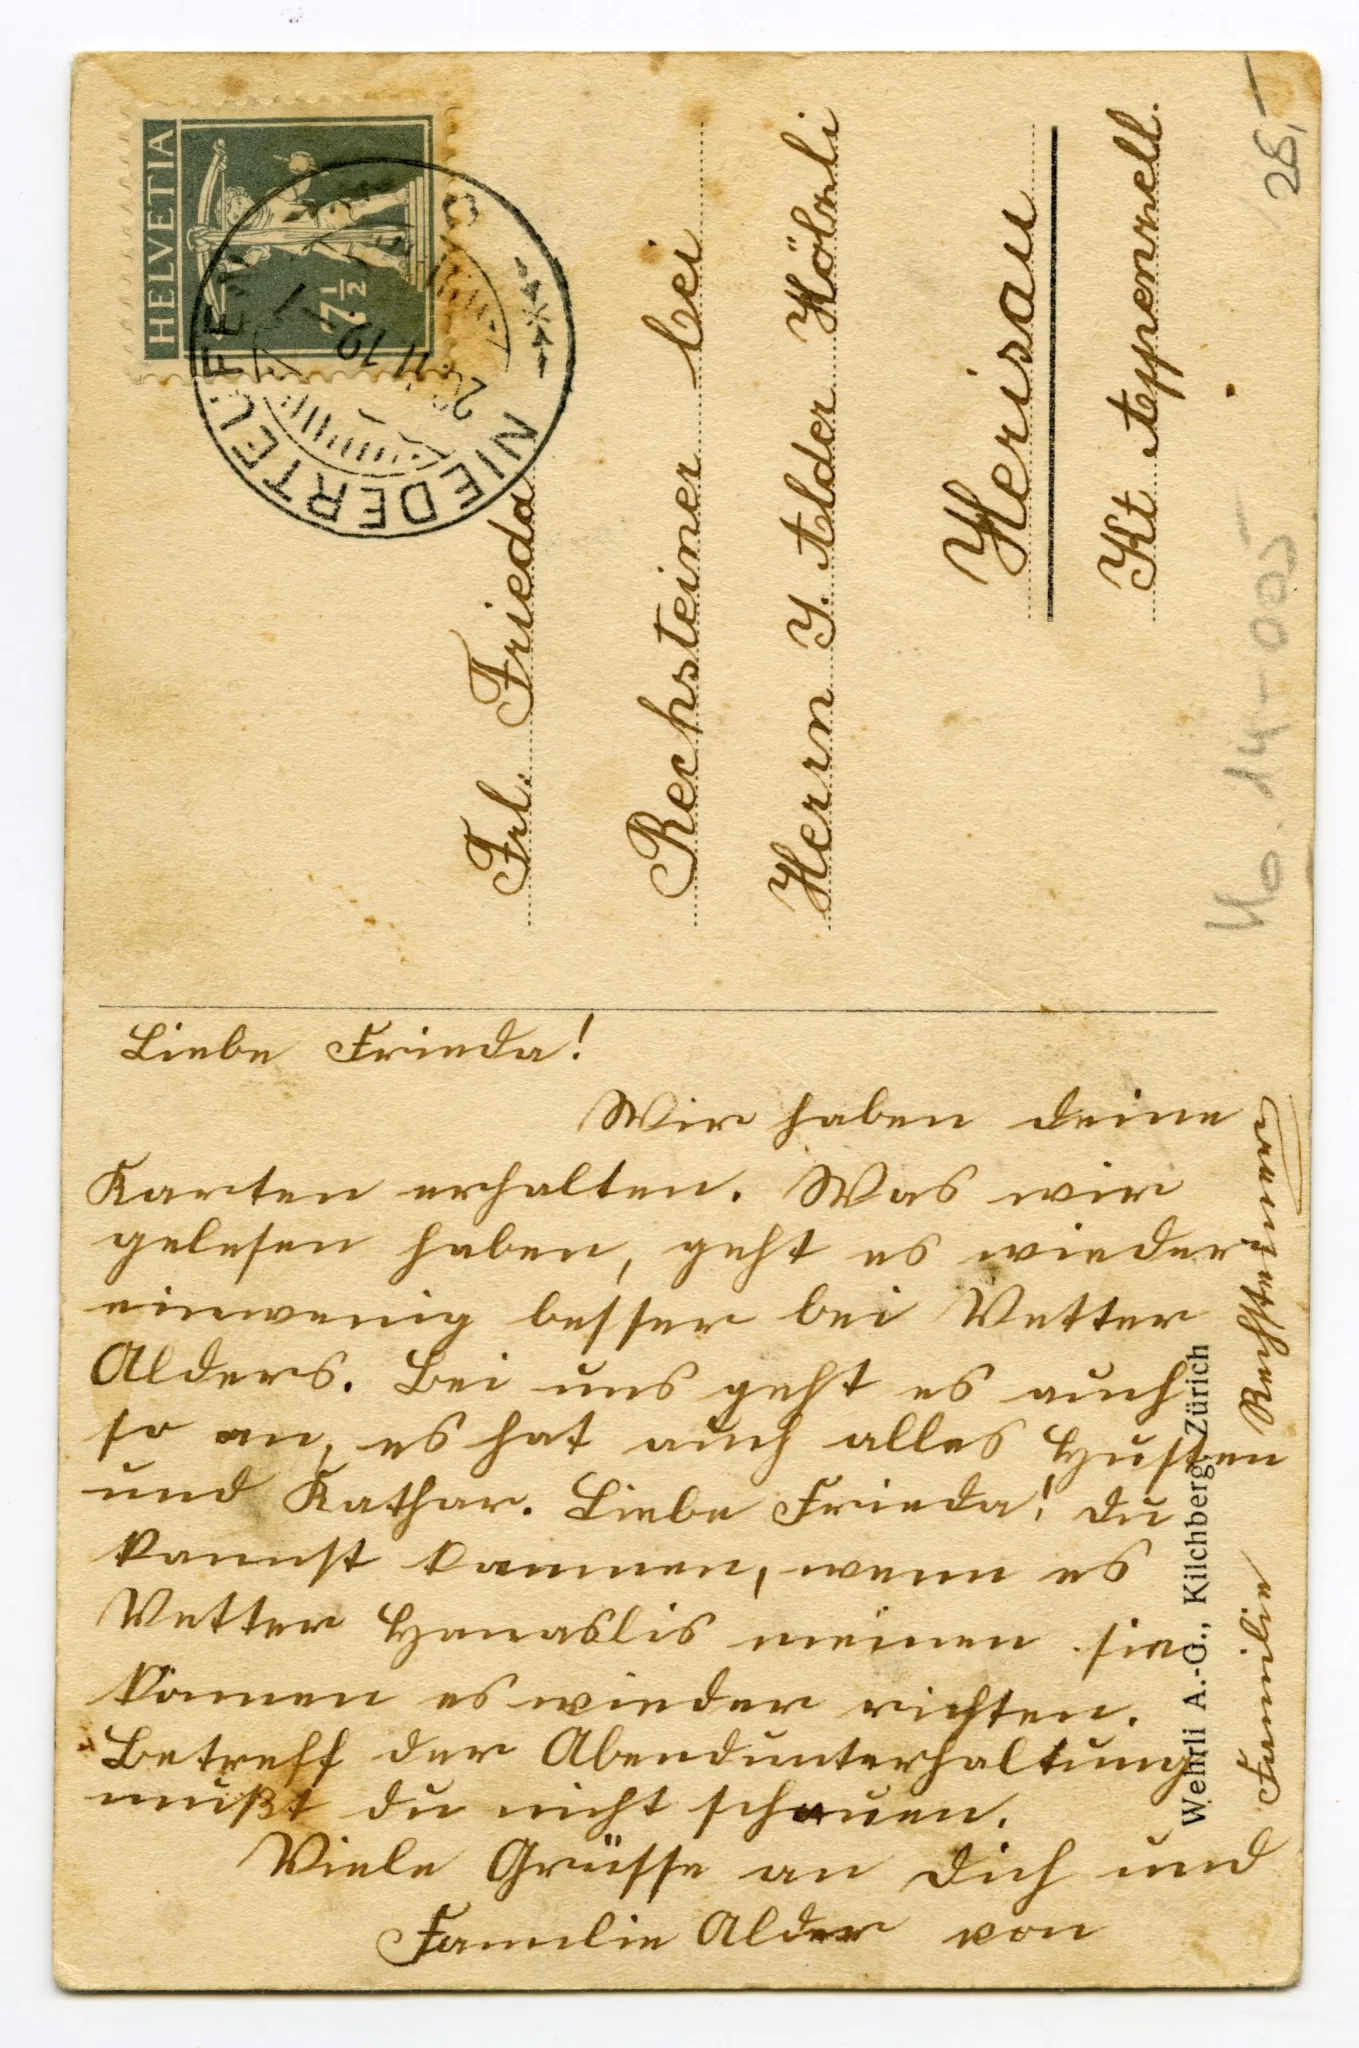 HELVETIA
7½
NIEDERTEUFEN
Frl. Frieda
Rechsteiner bei
Herrn J. Alder Hölzli
Herisau
Kt Appenzell.
28,-
No. 14-005
Liebe Frieda!
Wir haben deine
Karten erhalten. Was wir
gelesen haben, geht es wieder
einwenig besser bei Vetter
Alders. Bei uns geht es auch
so an, es hat auch alles Husten
und Kathar. Liebe Frieda! du
kannst kommen, wenn es
Vetter meinen sie
können es wieder richten.
Betreff der Abendunterhaltung
mußt du nicht schauen.
Viele Grüsse an Dich und
Familie Alder von
Familie Rechsteiner
Wehrli A.-G., Kilchberg, Zürich